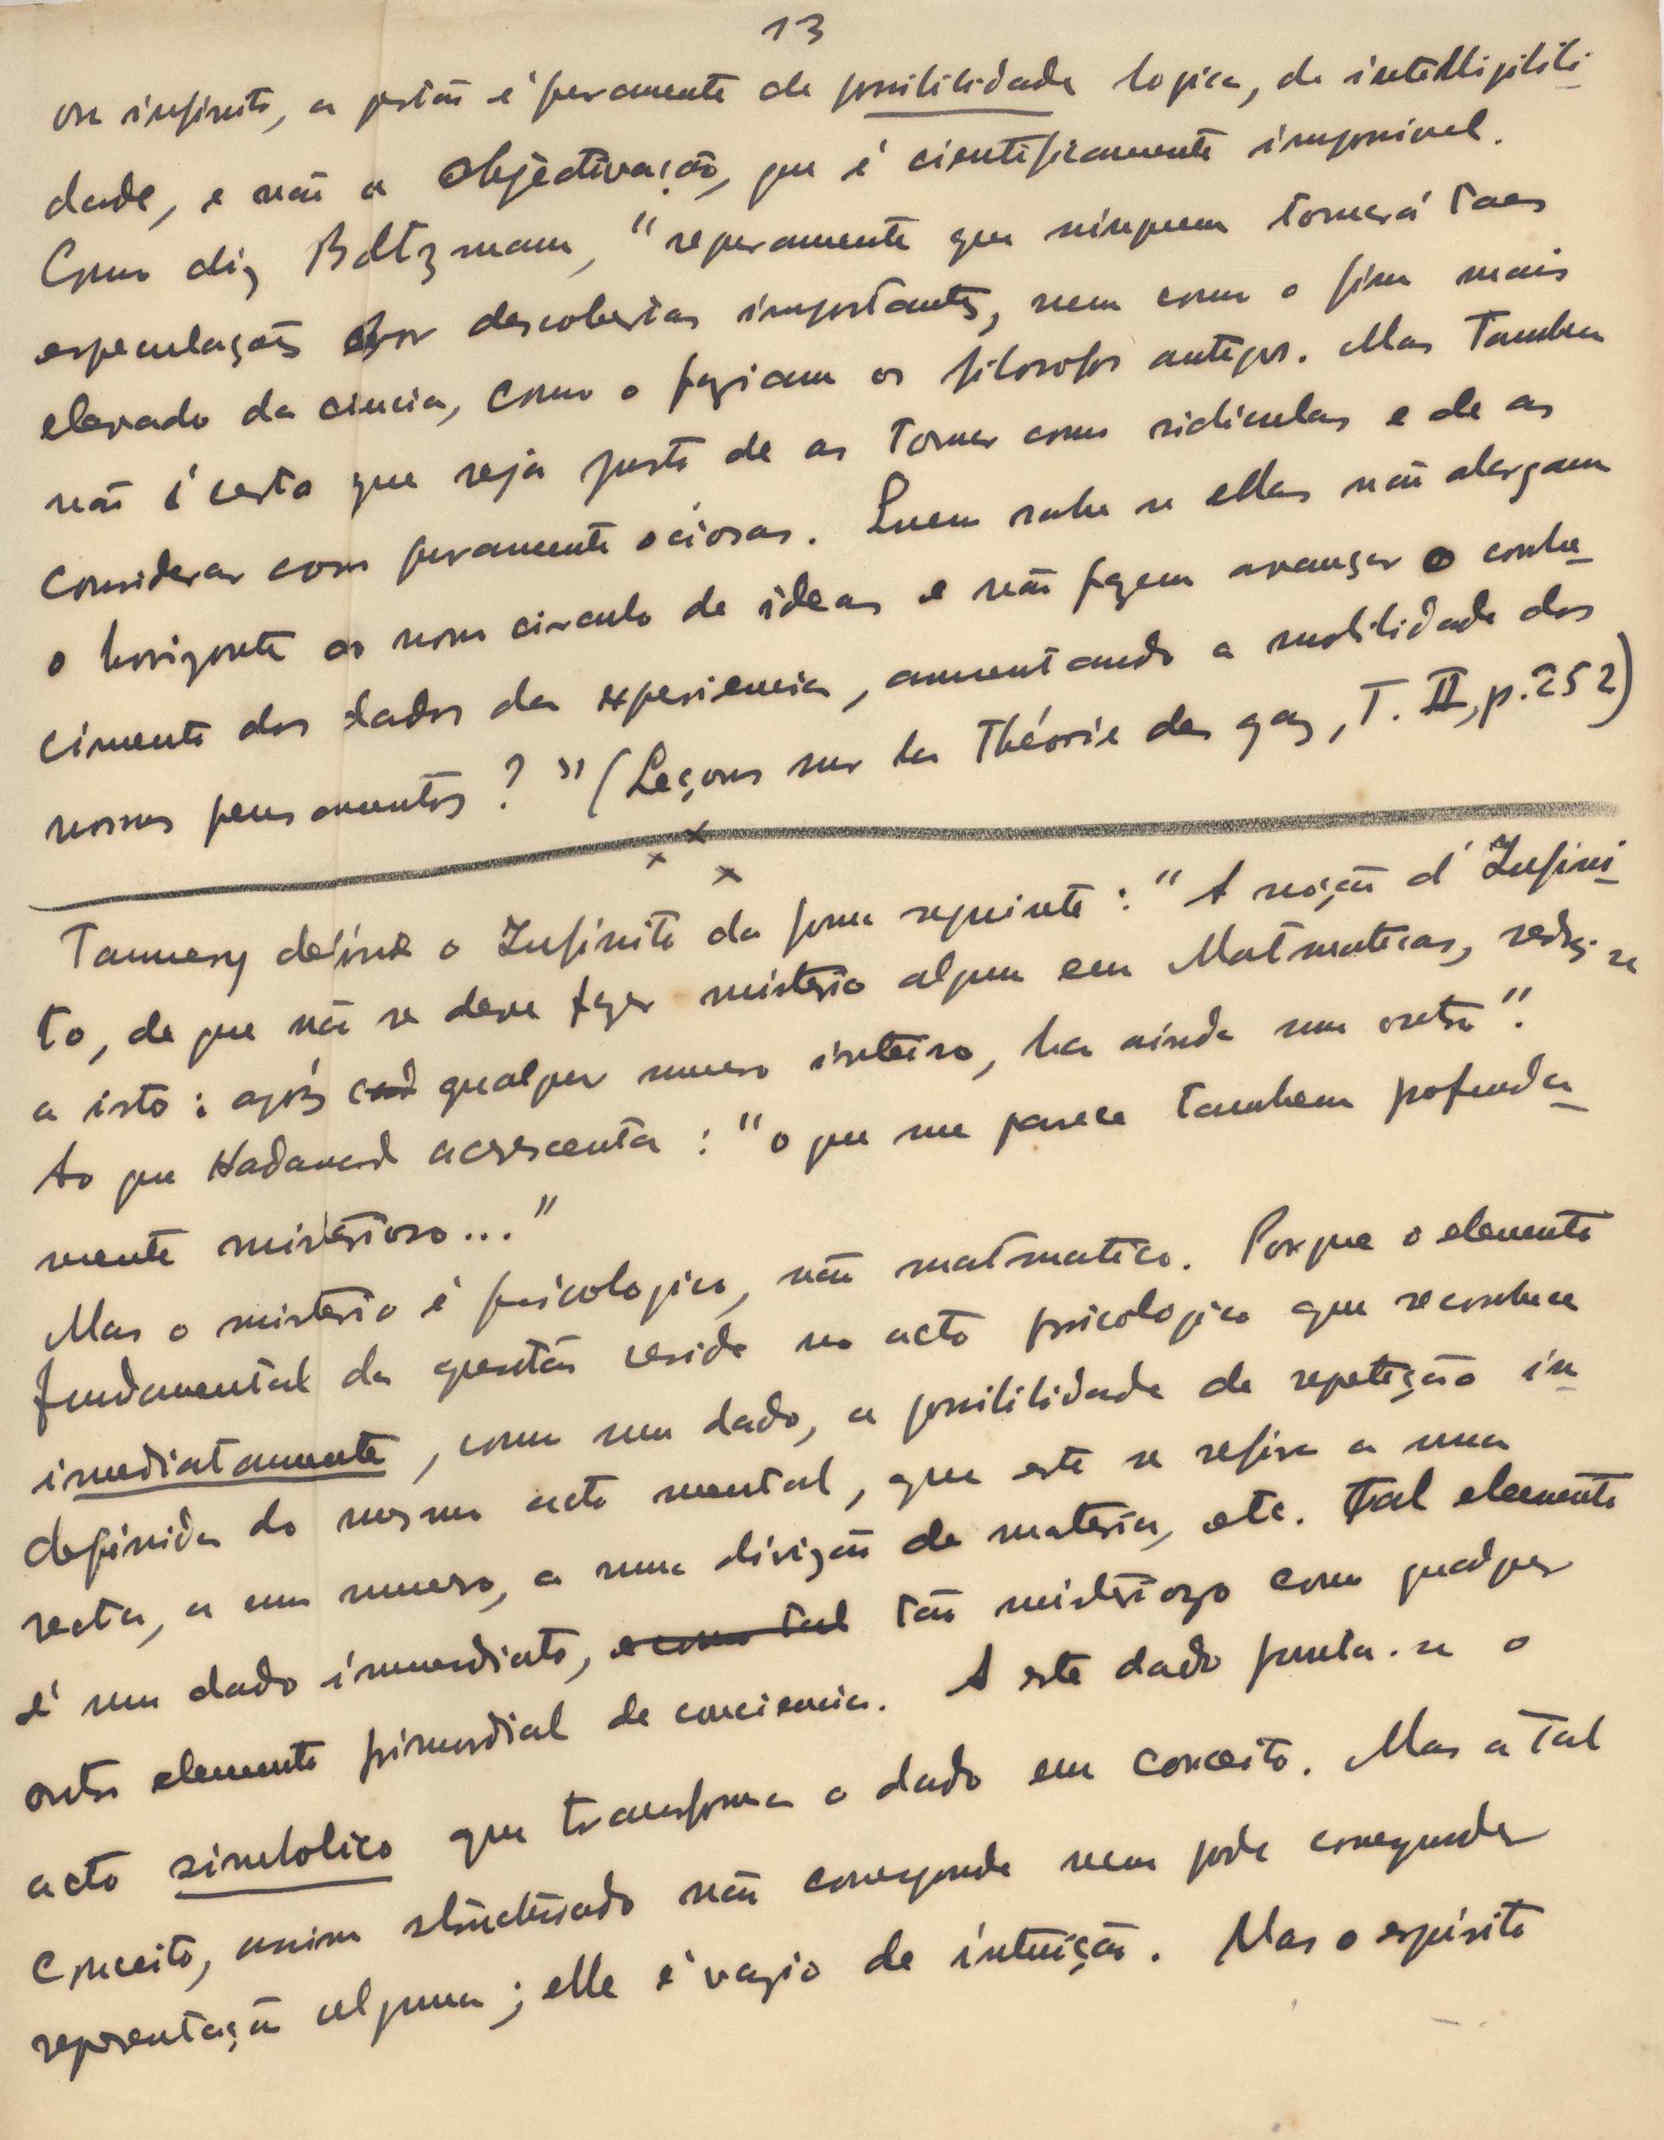 13
ou infinito, a questão é puramente de possibilidade logica, de intelligibili-
dade, e não a objectivação, que é cientificamente impossivel.
Como diz Boltzmann, "seguramente que ninguem tomará taes
especulações por descobertas importantes, nem como o fim mais
elevado da ciencia, como o faziam os filosofos antigos. Mas tambem
não é certo que seja justo de as tomar como ridiculas e de as
considerar como puramente ociosas. Quem sabe se ellas não alargam
o horizonte do nosso circulo de ideas e não fazem avançar o conhe-
cimento dos dados da experiencia, aumentando a mobilidade dos
nossos pensamentos?" (Leçons sur la Théorie des gaz, T. II, p. 252)
x x x
Tannery define o Infinito da forma seguinte: "A noção d'Infini-
to, de que não se deve fazer misterio algum em Matmaticas, reduz-se
a isto: após cad qualquer numero inteiro, ha ainda um outro".
Ao que Hadamard acrescenta: "o que me parece tambem profunda-
mente misterioso..."
Mas o misterio é psicologico, não matmatico. Porque o elemento
fundamental da questão reside no acto psicologico que reconhece
imediatamente, como um dado, a possibilidade de repetição in-
definida do mesmo acto mental, que este se refira a uma
recta, a um numero, a uma divizão de materia, etc. Tal elemento
é um dado immediato, e como tal tão misteriozo como qualquer
outro elemento primordial de conciencia. A este dado junta-se o
acto simbolico que transforma o dado em conceito. Mas a tal
conceito, assim não corresponde nem pode corresponder
representação alguma; elle é vazio de intuição. Mas o espirito